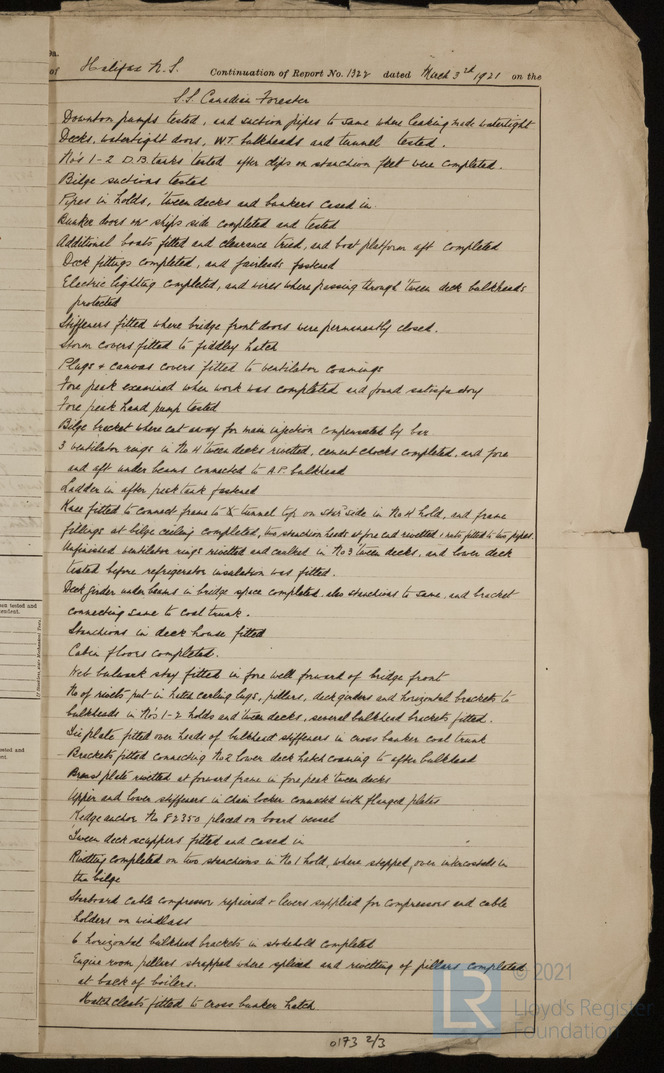 Halifax N.S. Continuation of Report No. 1322 dated March 3rd 1921 on the
S.S. Canadian Forester
Downton pumps tested, and suction pipes to same where leaking made watertight
Decks, watertight doors, W.T. bulkheads and tunnel tested.
No's 1-2 D.B. tanks tested after clips on stanchion feet were completed.
Bilge suctions tested
Pipes in holds, 'tween decks and bunkers cased in.
Bunker doors on ships side completed and tested
Additional boats fitted and clearance tried, and boat platform aft completed
Deck fittings completed, and fairleads fastened
Electric lighting completed, and wires where passing through 'tween deck bulkheads
protected
Stiffeners fitted where bridge front doors were permanently closed.
Storm covers fitted to fiddley hatch
Plugs + canvas covers fitted to ventilator coamings
Fore peak examined when work was completed and found satisfactory
Fore peak hand pump tested
Bilge bracket where cut away for main injection compensated by bar
3 ventilator rings in No 4 'tween decks rivetted, cement chocks completed, and fore
and aft under beams connected to A.P. bulkhead
Ladder in after peak tank fastened
Knee fitted to connect frame to tunnel top on star'd side in No 4 hold, and frame
fillings at bilge ceiling completed, two stanchion heads at fore end rivetted + nuts fitted to two pipes.
Unfinished ventilator rings rivetted and caulked in No 3 'tween decks, and lower deck
tested before refrigerator insulation was fitted.
Deck girder under beams in bridge space completed, also stanchions to same, and bracket
connecting same to coal trunk.
Stanchions in deck house fitted
Cabin floors completed.
Web bulwark stay fitted in fore well forward of bridge front
No of rivets put in hatch carling lugs, pillars, deck girders and horizontal brackets to
bulkheads in No's 1-2 holds and 'tween decks, several bulkhead brackets fitted.
Tie plate fitted over heads of bulkhead stiffeners in cross bunker coal trunk
Brackets fitted connecting No 2 lower deck hatch coaming to after bulkhead
Breast plate rivetted at forward frame in fore peak 'tween decks
Upper and lower stiffeners in chain locker connected with flanged plates
Kedge anchor No 82350 placed on board vessel
'Tween deck scuppers fitted and cased in
Rivetting completed on two stanchions in No 1 hold, where stepped over intercostals in
the bilge
Starboard cable compressor repaired + levers supplied for compressors and cable
holders on windlass
6 horizontal bulkhead brackets in stokehold completed
Engine room pillars strapped where spliced and rivetting of pillars completed
at back of boilers.
Hatch cleats fitted to cross bunker hatch.
0173 2/3
© 2021
Lloyd's Register
Foundation
LR